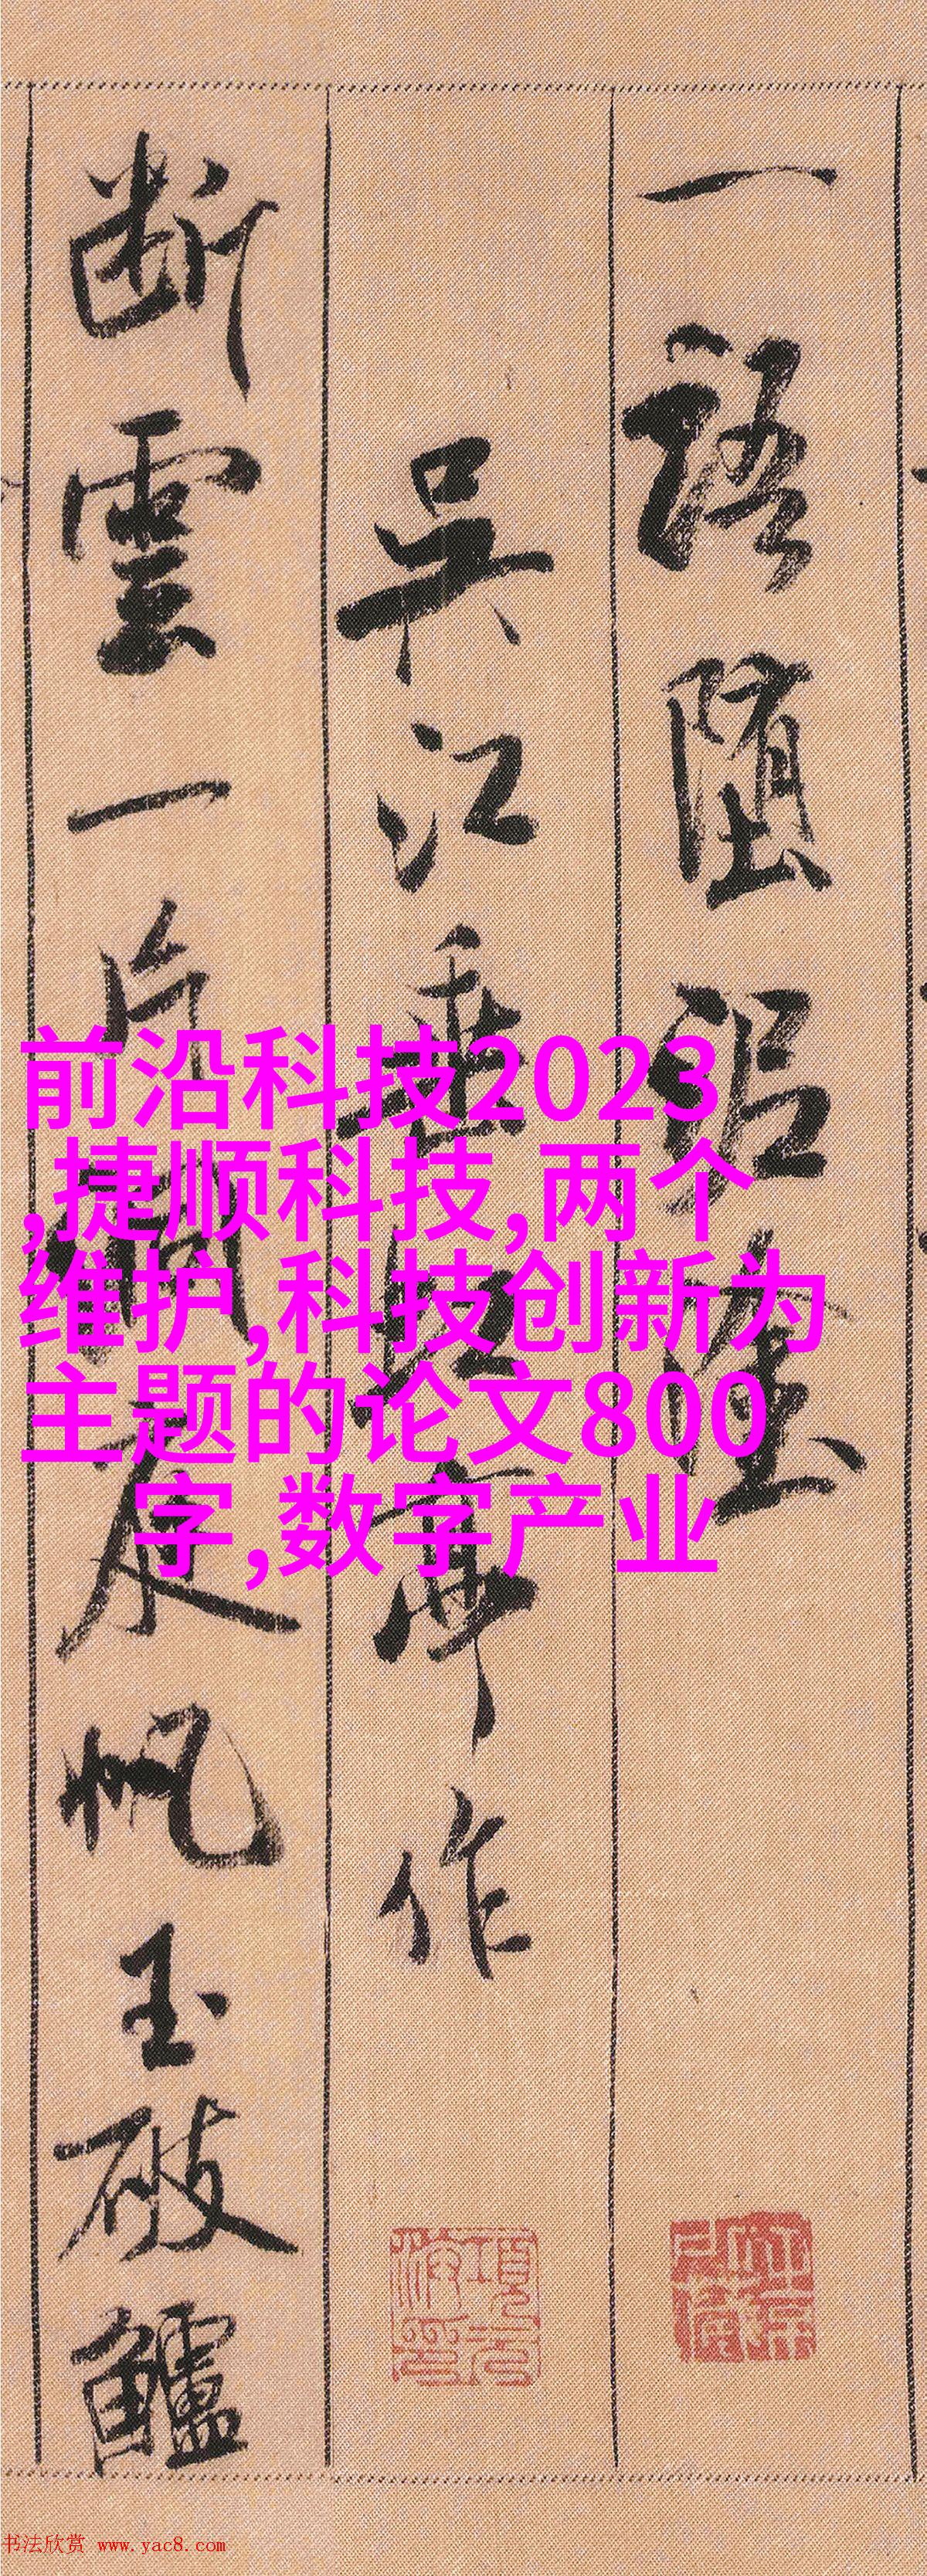 一語墮泥塗
吳江垂虹亭作
断雲一片洞庭帆玉破鱸
前沿科技2023
,捷顺科技,两个
维护,科技创新为
主题的论文800
字,数字产业
书法欣赏 www.yac8.com